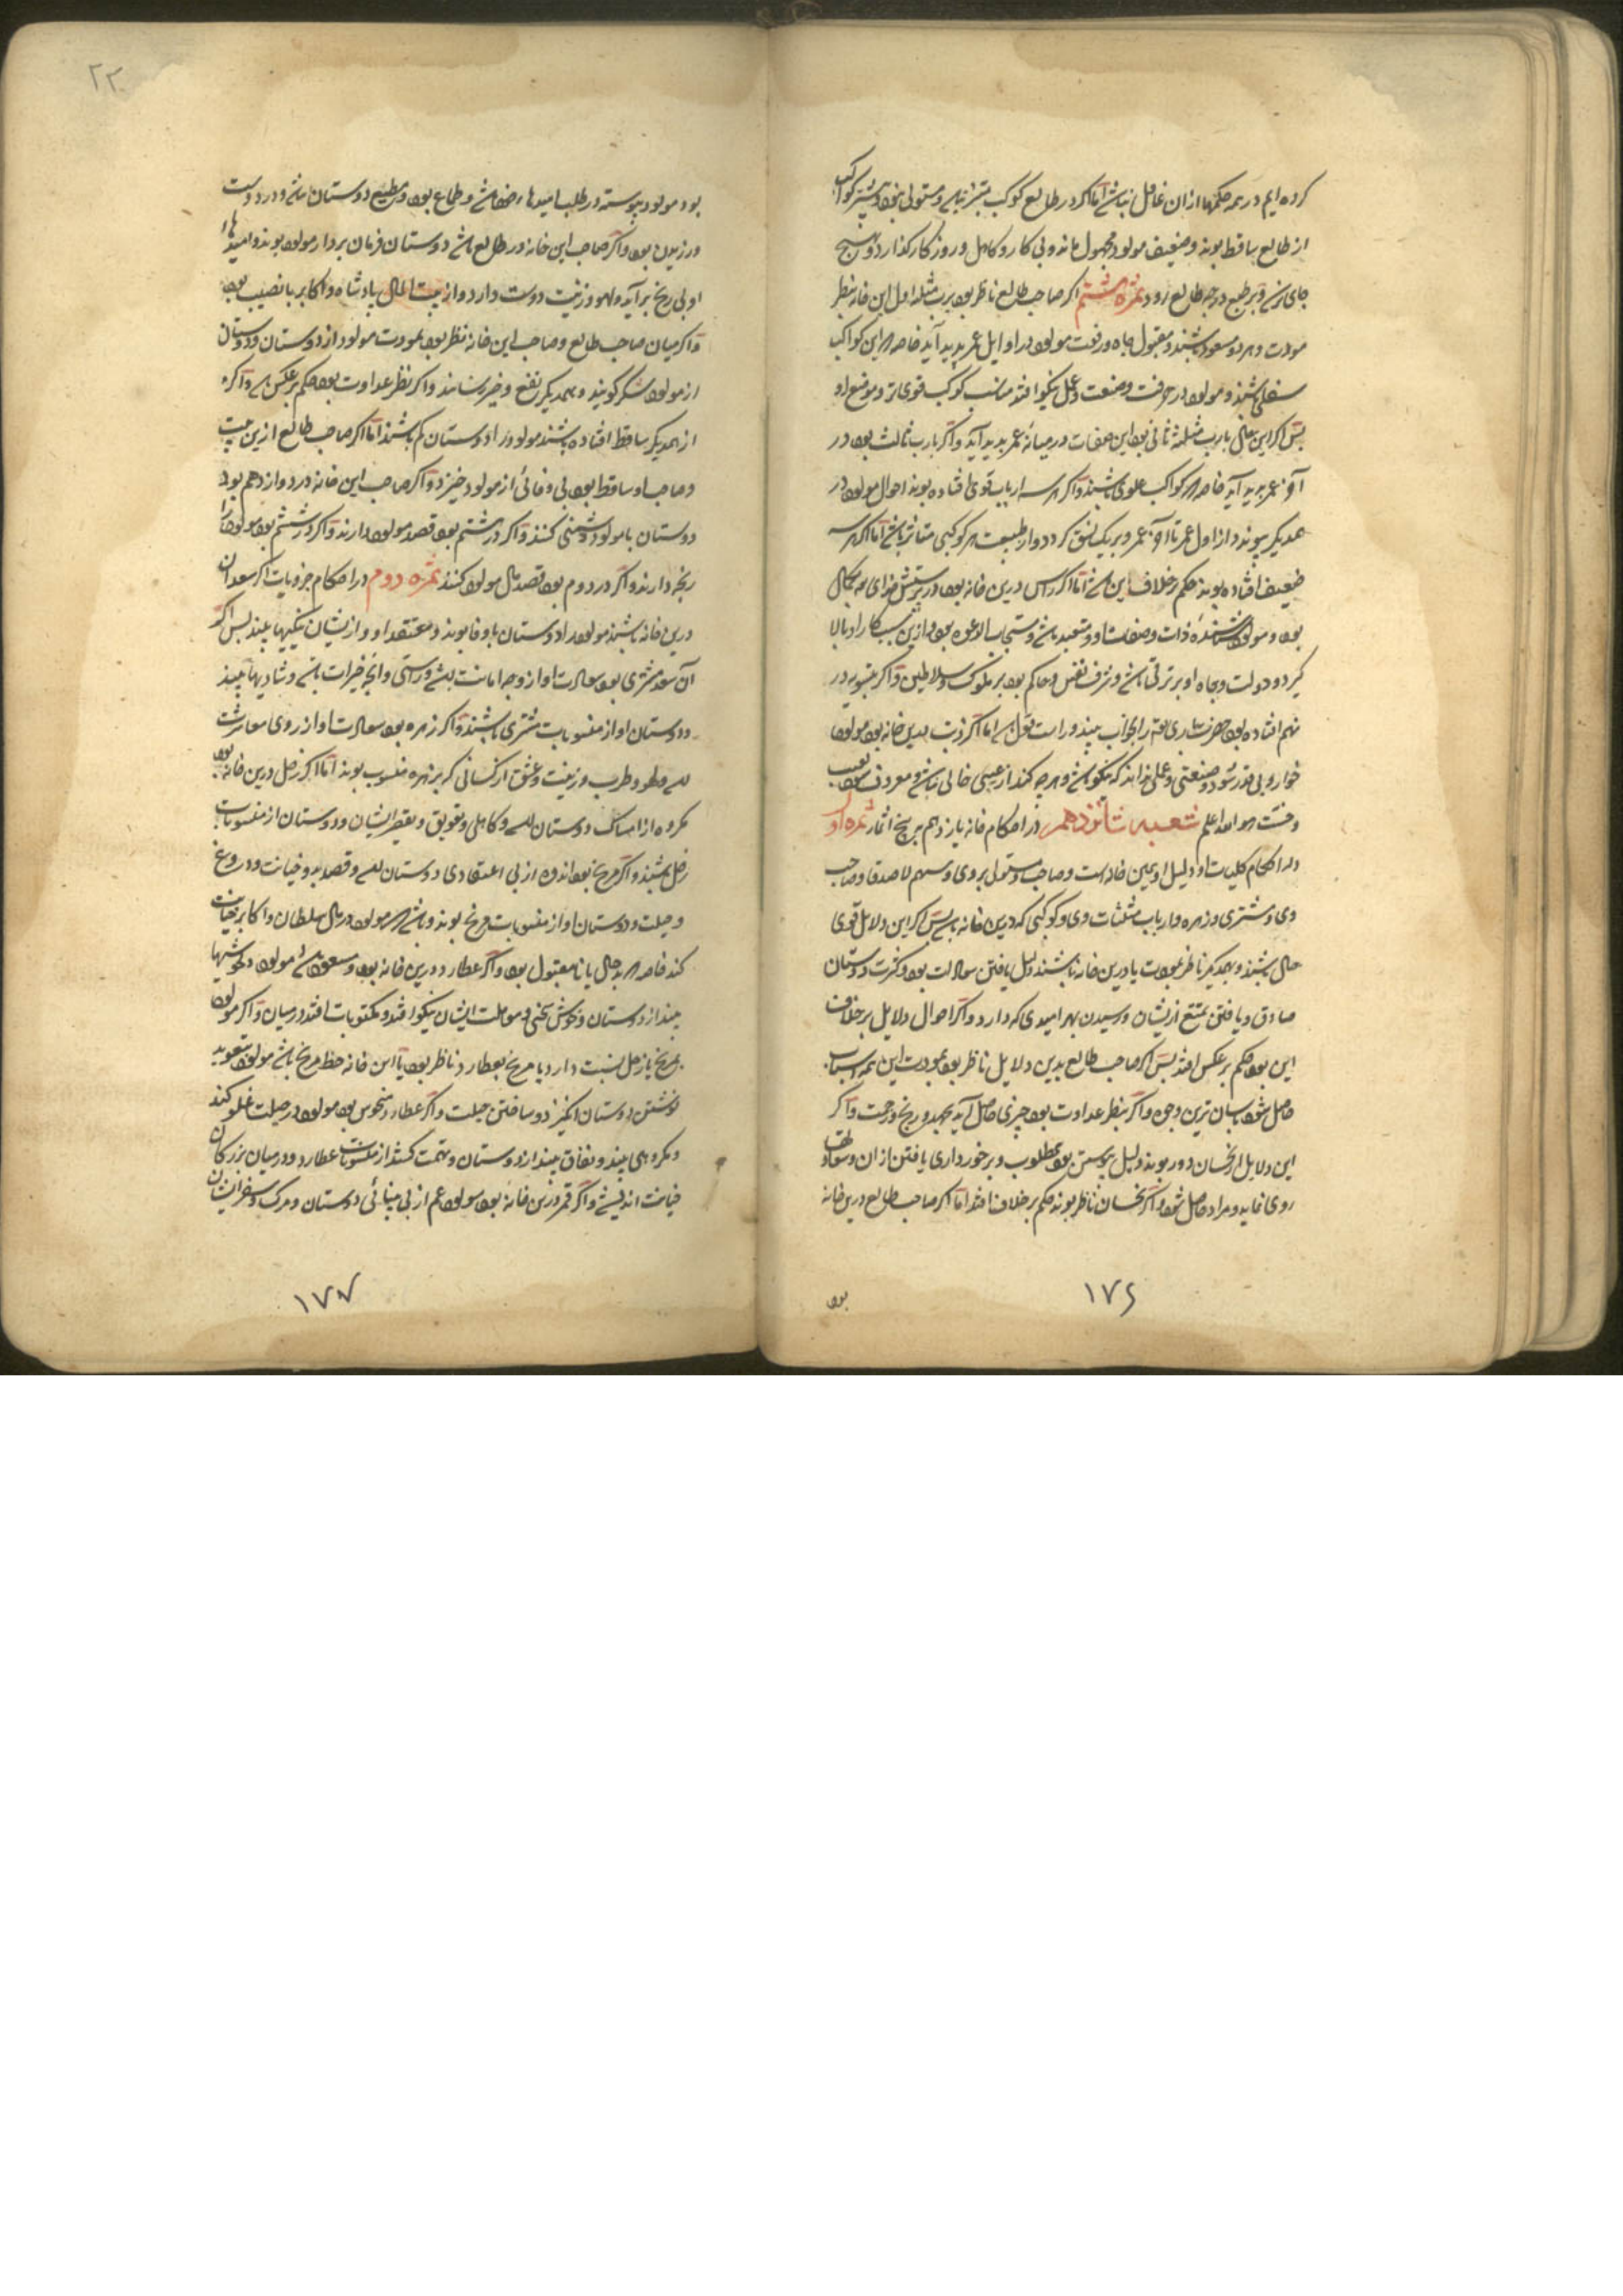 کرده ایم در همه حکمها از ان غافل نباشد اما اگر در طالع کوکب نباشد و مستولی نبود و بیشتر کواکب
از طالع ساقط بوند و ضعیف مولود مجهول ماند و بی کار و کاهل و روز کار گذارد و هیچ
جای نرسد ثمره هشتم اگر صاحب طالع ناظر بود برب مثلثه اول این خانه بنظر
مودت و هر دو مسعود باشند و مقبول جاه و رفعت مولود در اوایل عمر پدید آید خاصه که این کواکب
سفلی باشند و مولود در حرفت و صنعت و عمل نیکو افتد مناسب کوکب قوی تر و موضع او
پس اگر این حال بارب مثلثه ثانی بود این صفات در میانه عمر پدید آید و اگر بارب ثالث بود در
آخر عمر پدید آید خاصه که کواکب علوی باشند و اگر هر سه ارباب قوی افتاده بوند احوال مولود در
همدیگر پیوندد از اول عمر تا آخر عمر و بر یک نسق گردد و از طبیعت هر کوکبی متاثر باشد اما اگر هر سه
ضعیف افتاده بوند حکم بر خلاف این باشد اما اگر راس درین خانه بود در پرستش خدای بکمال
بود و مولود ذات و صفات او و متعبد باشد و مستجاب الدعوه بود و ازین سبب کار او بالا
گیرد و دولت و جاه او بر ترقی باشد و شرف نفس و حاکم بود بر ملوک و سلاطین و اگر
نهم افتاده بود حضرت باری را بخواب بیند و راست قول باشد اما اگر ذنب بدین خانه بود مولود
خوار و بی قدر شود و صنعتی و عملی نداند که نیکو باشد و هر چه کند از عیبی خالی نباشد و معروف بعیب
و هو الله اعلم شعبه شانزدهم در احکام خانه یازدهم بر پنج اثمار ثمره اول
در احکام کلیات او دلیل او همین خانه است و صاحب و مستولی بر وی و سهم الاصدقا و صاحب
وی و مشتری و زهره و ارباب مثلثات وی و کوکبی که درین خانه باشد پس اگر این دلایل قوی
حال باشند و بهمدیگر ناظر بمودت یا درین خانه باشند دلیل یافتن سعادت بود و کثرت دوستان
صادق و یافتن تمتع از ایشان و رسیدن بهر امیدی که دارد و اگر احوال دلایل بر خلاف
این بود حکم بر عکس افتد پس اگر صاحب طالع بدین دلایل ناظر بود بمودت این همه اسباب
حاصل شود باسان ترین وجهی و اگر بنظر عداوت بود چیزی حاصل آید بجهد و رنج و زحمت و اگر
این دلایل از نحسان دور بوند دلیل پیوستن بود بمطلوب و برخورداری یافتن از ان و سعادتها
روی نماید و مراد حاصل شود و اگر نحسان ناظر بوند حکم بر خلاف افتد اما اگر صاحب طالع درین خانه
بود
۱۷۶
۲۲۰
بود مولود پیوسته در طلب امیدها باشد و طماع بود و مطیع دوستان باشد و در دوست
ورزیدن بود و اگر صاحب این خانه در طالع باشد دوستان فرمان بردار مولود بوند و امیدهای
او بی رنج برآید و لهو و زینت دوست دارد و از بیت المال پادشاه و اکابر با نصیب بود
و اگر میان صاحب طالع و صاحب این خانه نظر بود بمودت مولود از دوستان و دوستان
از مولود شکر گویند و بهمدیگر نفع و خیر رسانند و اگر نظر عداوت بود حکم بر عکس باشد و اگر
از همدیگر ساقط افتاده باشند مولود را دوستان کم باشند اما اگر صاحب طالع ازین بیت
و صاحب او ساقط بود بی وفائی از مولود خیزد و اگر صاحب این خانه در دوازدهم بود
دوستان با مولود دشمنی کنند و اگر در هشتم بود قصد مولود دارند و اگر در ششم بود مولود را
رنجه دارند و اگر در دوم بود قصد مال مولود کنند ثمره دوم در احکام جزویات اگر سعدان
درین خانه باشند مولود را دوستان با وفا بوند و معتقد او و از ایشان نیکیها بیند پس اگر
آن سعد مشتری بود سعادت او از وجه امانت باشد و راستی و انچه خیرات باشد و شادیها بیند
و دوستان او از منسوبات مشتری باشند و اگر زهره بود سعادت او از روی معاشرت
باشد و لهو و طرب و زینت و عشق از کسانی که بزهره منسوب بوند اما اگر زحل درین خانه بود
مکروه از امساک دوستان باشد و کاهلی و تعویق و تقصیر ایشان و دوستان از منسوبات
زحل باشند و اگر مریخ بود اندوه از بی اعتقادی دوستان باشد و قصد بد و خیانت و دروغ
و حیلت و دوستان او از منسوبات مریخ بوند و باشد که مولود در مال سلطان و اکابر خیانت
کند خاصه که بد حال یا نامقبول بود و اگر عطارد درین خانه بود و مسعود باشد مولود خوشیها
بیند از دوستان و خوش سخنی و معاملت ایشان نیکو افتد و مکتوبات افتد در میان و اگر مولود
بمریخ یا زحل نسبت دارد یا مریخ بعطارد ناظر بود یا این خانه حظ مریخ باشد مولود بتعویذ
نوشتن دوستان انگیزد و ساختن حیلت و اگر عطارد منحوس بود مولود در حیلت غلو کند
و مکروهی بیند و نفاق بیند از دوستان و تهمت کشد از منسوبات عطارد و در میان بزرگان
خیانت اندیشد و اگر قمر درین خانه بود مولود غم از بی دوستان و مرگ و سفر ایشان
۱۷۷